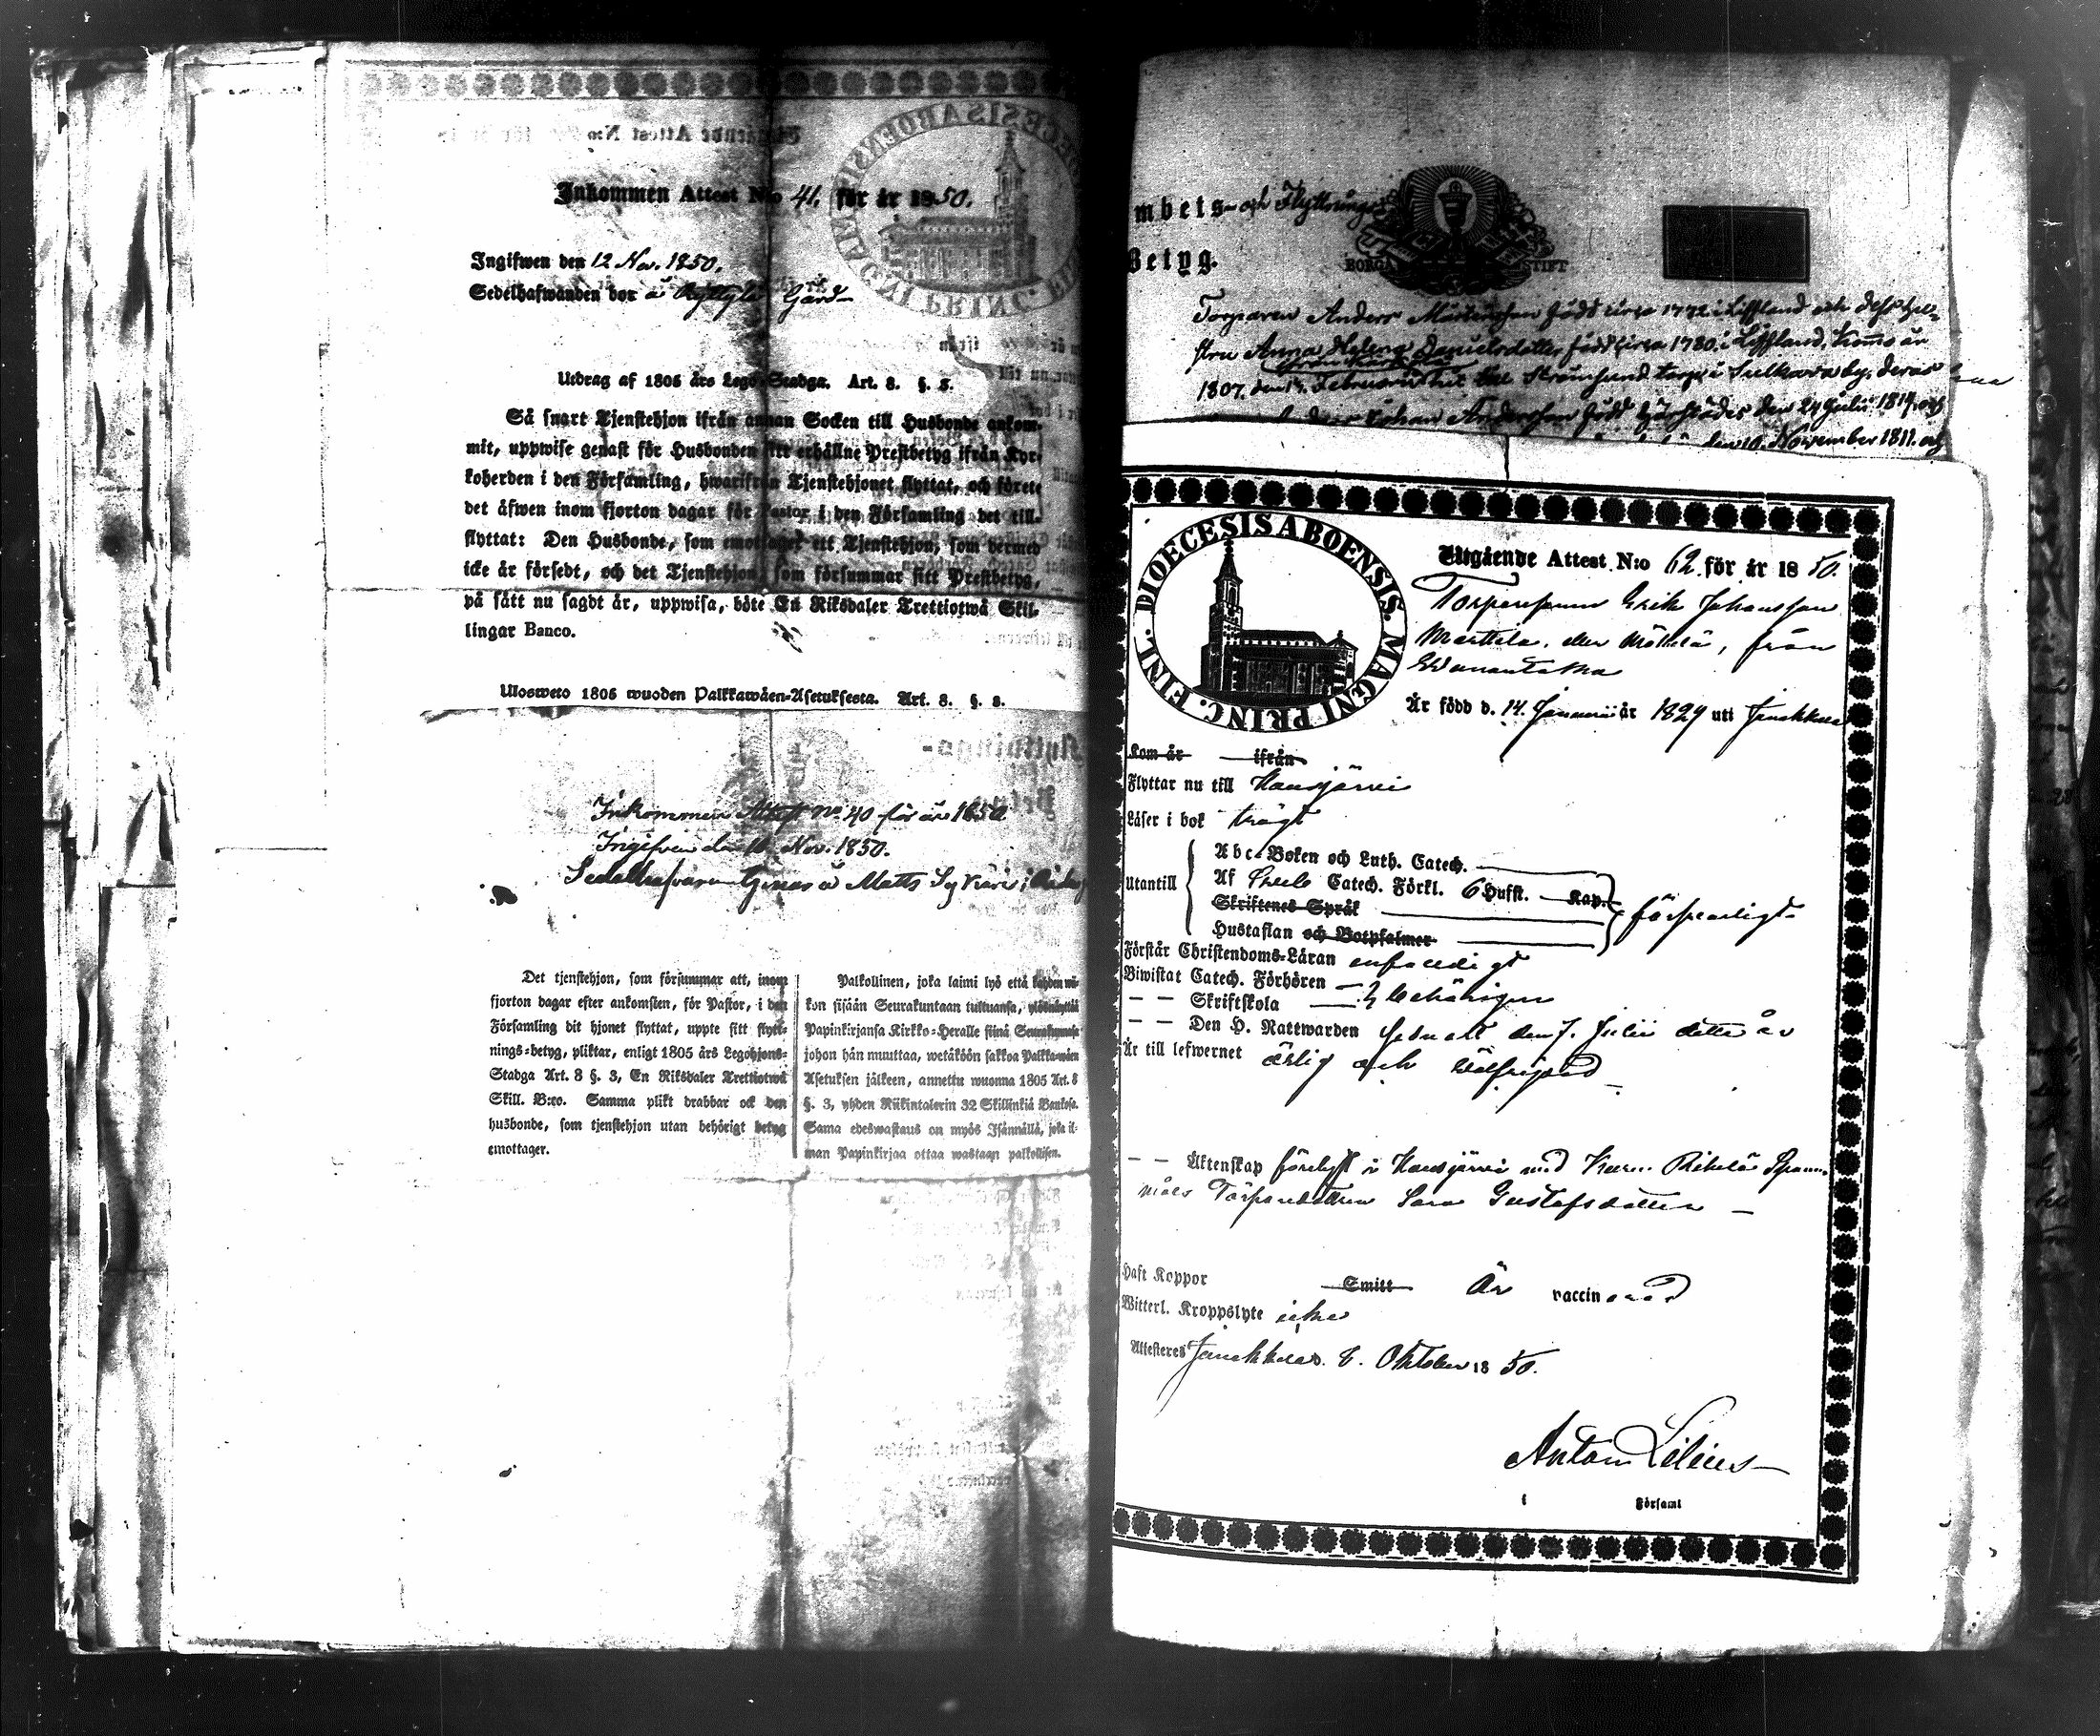 Inkommen Attest N:o 41. för år 1850.
Ingifwen den 12 Nov. 1850.
Sedelhafwanden bor å Ryttylä Gård
Utdrag af 1805 års Lego-Stadga. Art. 8. §. 3.
Så snart Tjenstehjon ifrån annan Socken till Husbonde ankom-
mit, uppwise genast för Husbonden sitt erhållne Prestbetyg ifrån Kyr-
koherden i den Församling, hwarifrån Tjenstehjonet flyttat, och förete
det äfwen inom fjorton dagar för Pastor i den Församling det till-
flyttat: Den Husbonde, som emottager ett Tjenstehjon, som dermed
icke är försedt, och det Tjenstehjon, som försummar sitt Prestbetyg,
på sätt nu sagdt är, uppwisa, böte En Riksdaler Trettiotwå Skil-
lingar Banco.
Ulosweto 1805 wuoden Palkkawäen-Asetuksesta. Art. 8. §. 3.
Inkommen Attest No 40 för år 1850
Ingifven den 10 Nov. 1850.
Matts
Det tjenstehjon, som försummar att, inom
fjorton dagar efter ankomsten, för Pastor, i den
Församling dit hjonet flyttat, uppte sitt flytt-
nings-betyg, pliktar, enligt 1805 års Legohjons-
Stadga Art. 8 §. 3, En Riksdaler Trettiotwå
Skill. B:co. Samma plikt drabbar ock den
husbonde, som tjenstehjon utan behörigt betyg
emottager.
Palkollinen, joka laimi lyö että kahden wii-
kon sisään Seurakuntaan tultuansa, ylösnäyttää
Papinkirjansa Kirkko-Heralle siinä Seurakunnasa
johon hän muuttaa, wetäköön sakkoa Palkka-wäen
Asetuksen jälkeen, annettu wuonna 1805 Art. 8
§. 3, yhden Riikintalerin 32 Skillinkiä Bankosa.
Sama edeswastaus on myös Isännällä, joka il-
man Papinkirjaa ottaa wastaan palkollisen.
mbets- och Flyttnings
Betyg.
BORGÅ STIFT
Torparen Anders Mårtensson född circa 1772 i Liffland och dess hu-
stru Anna Helena Danielsdotter född circa 1780. i Liffland, Komo år
1807. den 14. Februarii hit till Strömsund torp i Sulkava by, deras
Johan Andersson född härstädes den 24 Julii 1814. och
den 10. November 1811. och
DIOECESIS ABOENSIS. MAGNI PRINC. FINL.
Utgående Attest N:o 62 för år 1850.
Torparesonen Erik Johansson
Marttila, eller Mäkelä, från
Är född d. 14. Januarii år 1829 uti Janakkala
Kom år ifrån
Flyttar nu till Hausjärvi
Läser i bok trögt
Utantill
Abc-Boken och Luth. Catech.
Af Catech. Förkl. 6 Hufst. Kap.
Skriftenes Språk
Hustaflan och Botpsalmer
försvarligt
Förstår Christendoms-Läran enfaldigt
Biwistat Catech. Förhören
— — Skriftskola behörigen
— — Den H. Nattwarden sednast den 7. Julii detta år
Är till lefwernet ärlig och välfrejdad
— — Äktenskap förelyst i Hausjärvi med
Torparedottren Sara Gustafsdotter —
Haft Koppor Smitt Är vaccinerad
Witterl. Kroppslyte icke
Attesteres Janakkala d. 8. Oktober 1850.
Anton Lilius
i Församl